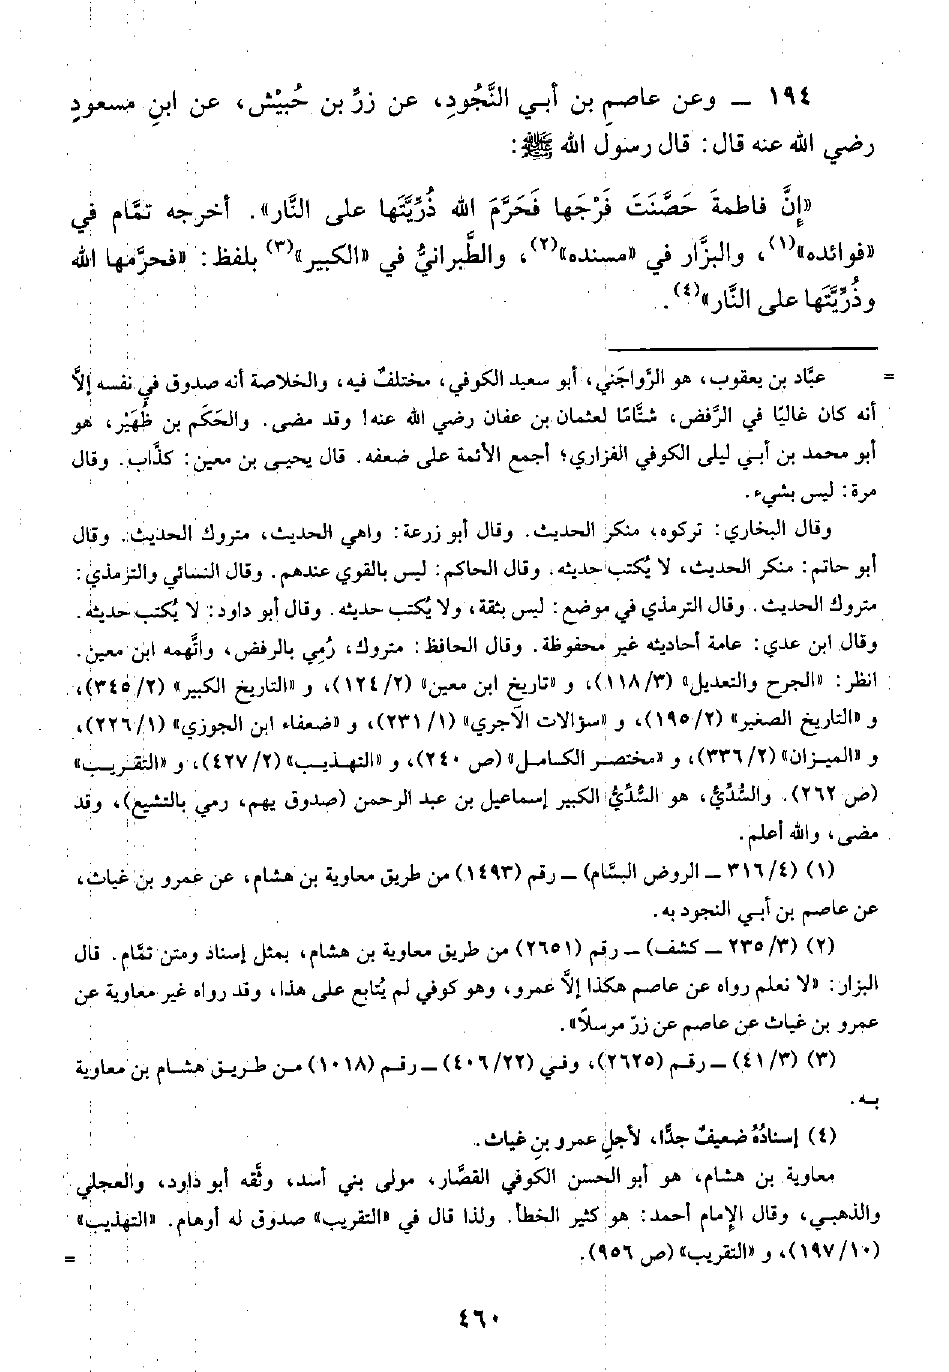 ١٩٤ ــ وعن عاصمِ بن أبي النَّجُودِ، عن زرِّ بن حُبَيْش، عن ابنِ مسعودٍ
رضي الله عنه قال: قال رسول الله ﷺ:
«إنَّ فاطمةَ حَصَّنَتَ فَرْجَها فَحَرَّمَ الله ذُرِّيَّتَها على النَّار». أخرجه تمَّام في
«فوائده»(١)، والبزَّار في «مسنده»(٢)، والطَّبرانيُّ في «الكبير»(٣) بلفظ: «فحرَّمها الله
وذُرِّيَّتَها على النَّار»(٤).
= عبَّاد بن يعقوب، هو الرَّواجَني، أبو سعيد الكوفي، مختلفٌ فيه، والخلاصة أنه صدوق في نفسه إلاَّ
أنه كان غاليًا في الرَّفض، شتَّامًا لعثمان بن عفان رضي الله عنه! وقد مضى. والحَكَم بن ظُهَيْر، هو
أبو محمد بن أبي ليلى الكوفي الفزاري؛ أجمع الأئمة على ضعفه. قال يحيى بن معين: كذَّاب. وقال
مرة: ليس بشيء.
وقال البخاري: تركوه، منكر الحديث. وقال أبو زرعة: واهي الحديث، متروك الحديث. وقال
أبو حاتم: منكر الحديث، لا يُكتب حديثه. وقال الحاكم: ليس بالقوي عندهم. وقال النسائي والترمذي:
متروك الحديث. وقال الترمذي في موضع: ليس بثقة، ولا يُكتب حديثه. وقال أبو داود: لا يُكتب حديثه.
وقال ابن عدي: عامة أحاديثه غير محفوظة. وقال الحافظ: متروك، رُمي بالرفض، واتَّهمه ابن معين.
انظر: «الجرح والتعديل» (٣/ ١١٨)، و «تاريخ ابن معين» (٢/ ١٢٤)، و «التاريخ الكبير» (٢/ ٣٤٥)،
و «التاريخ الصغير» (٢/ ١٩٥)، و «سؤالات الآجري» (١/ ٢٣١)، و «ضعفاء ابن الجوزي» (١/ ٢٢٦)،
و «الميزان» (٢/ ٣٣٦)، و «مختصر الكامل» (ص ٢٤٠)، و «التهذيب» (٢/ ٤٢٧)، و «التقريب»
(ص ٢٦٢). والسُّدِّيُّ، هو السُّدِّيُّ الكبير إسماعيل بن عبد الرحمن (صدوق يهم، رمي بالتشيع)، وقد
مضى، والله أعلم.
(١) (٤/ ٣١٦ ــ الروض البسَّام) ــ رقم (١٤٩٣) من طريق معاوية بن هشام، عن عمرو بن غياث،
عن عاصم بن أبي النجود به.
(٢) (٣/ ٢٣٥ ــ كشف) ــ رقم (٢٦٥١) من طريق معاوية بن هشام، بمثل إسناد ومتن تمَّام. قال
البزار: «لا نعلم رواه عن عاصم هكذا إلاَّ عمرو، وهو كوفي لم يُتابع على هذا، وقد رواه غير معاوية عن
عمرو بن غياث عن عاصم عن زرّ مرسلاً».
(٣) (٣/ ٤١) ــ رقم (٢٦٢٥)، وفي (٢٢/ ٤٠٦) ــ رقم (١٠١٨) من طريق هشام بن معاوية
به.
(٤) إسنادُهُ ضعيفٌ جدًّا، لأجلِ عمرو بنِ غياث.
معاوية بن هشام، هو أبو الحسن الكوفي القصَّار، مولى بني أسد، وثَّقه أبو داود، والعجلي
والذهبي، وقال الإمام أحمد: هو كثير الخطأ. ولذا قال في «التقريب» صدوق له أوهام. «التهذيب»
(١٠/ ١٩٧)، و «التقريب» (ص ٩٥٦). =
٤٦٠